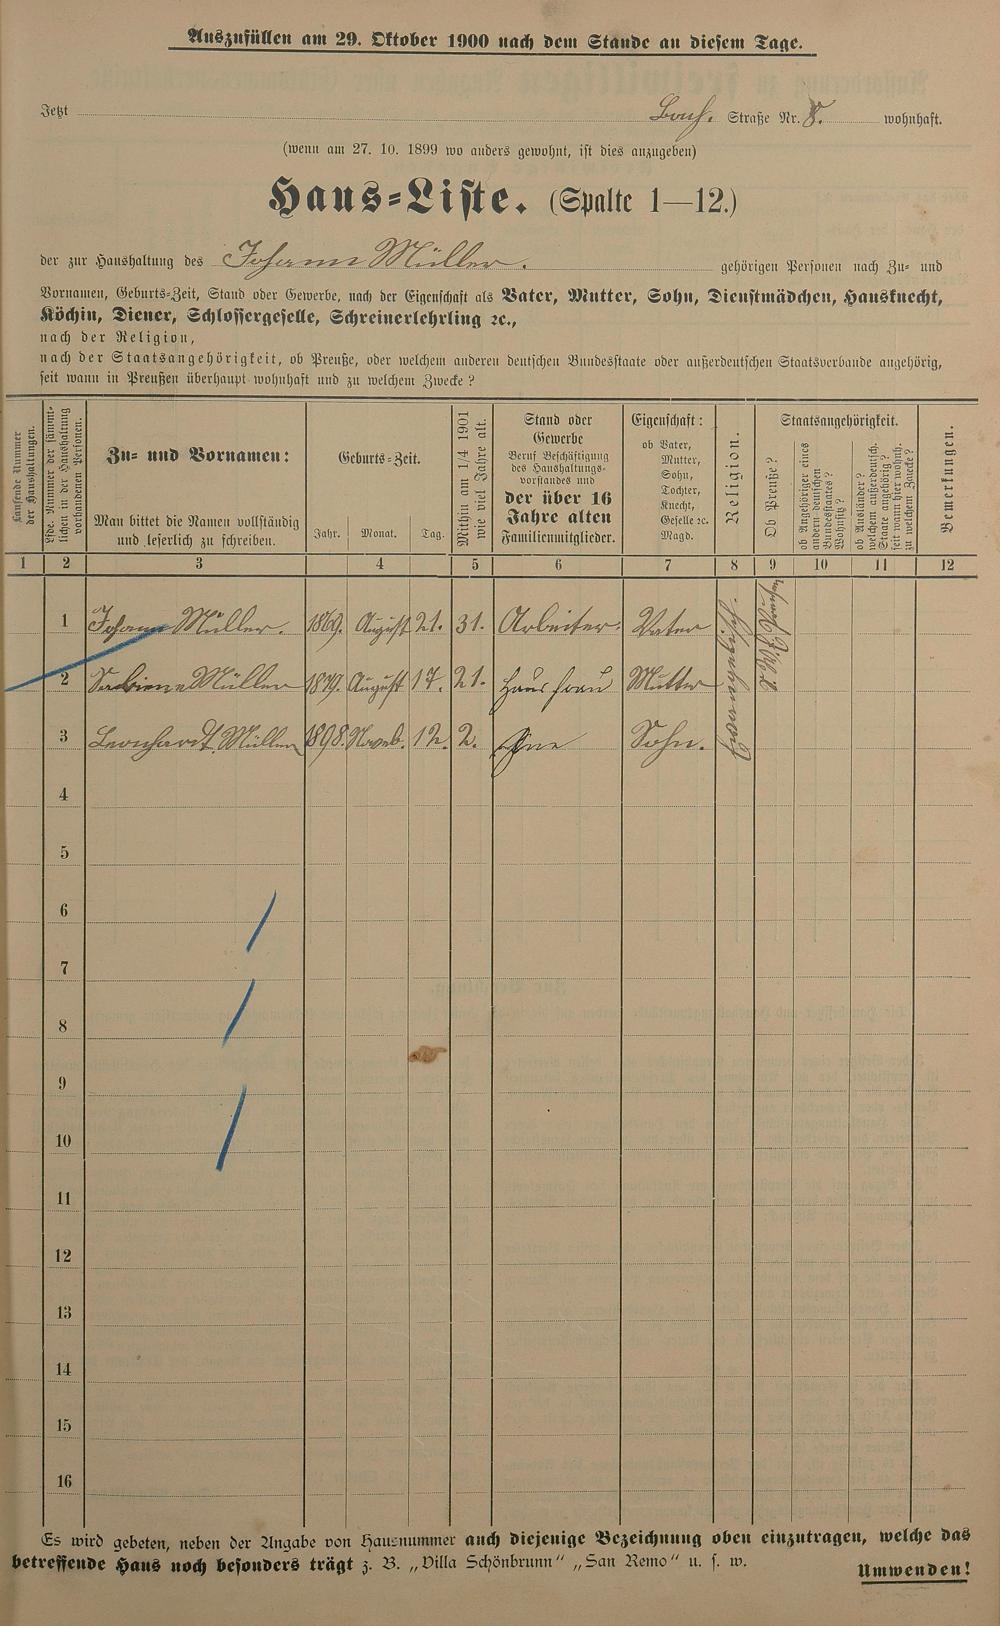 Auszufüllen am 29. Oktober 1900 nach dem Stande an diesem Tage.
Jetzt Straße Nr. 8. wohnhaft.
(wenn am 27. 10. 1899 wo anders gewohnt, ist dies anzugeben)
Haus=Liste. (Spalte 1—12.)
der zur Haushaltung des Johann Müller. gehörigen Personen nach Zu= und
Vornamen, Geburts=Zeit, Stand oder Gewerbe, nach der Eigenschaft als Vater, Mutter, Sohn, Dienstmädchen, Hausknecht,
Köchin, Diener, Schlossergeselle, Schreinerlehrling ꝛc.,
nach der Religion,
nach der Staatsangehörigkeit, ob Preuße, oder welchem anderen deutschen Bundesstaate oder außerdeutschen Staatsverbande angehörig,
seit wann in Preußen überhaupt wohnhaft und zu welchem Zwecke?
Laufende Nummer
der Haushaltungen.
Lfde. Nummer der sämmt-
lichen in der Haushaltung
vorhandenen Personen.
Zu= und Vornamen:
Man bittet die Namen vollständig
und leserlich zu schreiben.
Geburts=Zeit.
Jahr. Monat. Tag.
Mithin am 1/4 1901
wie viel Jahre alt.
Stand oder
Gewerbe
Beruf Beschäftigung
des Haushaltungs-
vorstandes und
der über 16
Jahre alten
Familienmitglieder.
Eigenschaft:
ob Vater,
Mutter,
Sohn,
Tochter,
Knecht,
Geselle ꝛc.
Magd.
Religion.
Staatsangehörigkeit.
Ob Preuße?
ob Angehöriger eines
andern deutschen
Bundesstaates?
Wohnsitz?
ob Ausländer?
welchem außerdeutsch.
Staate angehörig?
seit wann hier wohnh.
zu welchem Zwecke?
Bemerkungen.
1 2 3 4 5 6 7 8 9 10 11 12
1 Johann Müller. 1869. August 21. 31. Arbeiter. Vater
2 Sabiena Müller 1879. August 17. 21. Hausfrau Mutter
3 Leonhardt Müller 1898. Noveb. 12. 2. Sohn.
Ewangelisch.
4
5
6
7
8
9
10
11
12
13
14
15
16
Es wird gebeten, neben der Angabe von Hausnummer auch diejenige Bezeichnung oben einzutragen, welche das
betreffende Haus noch besonders trägt z. B. „Villa Schönbrunn“ „San Remo“ u. s. w.
Umwenden!